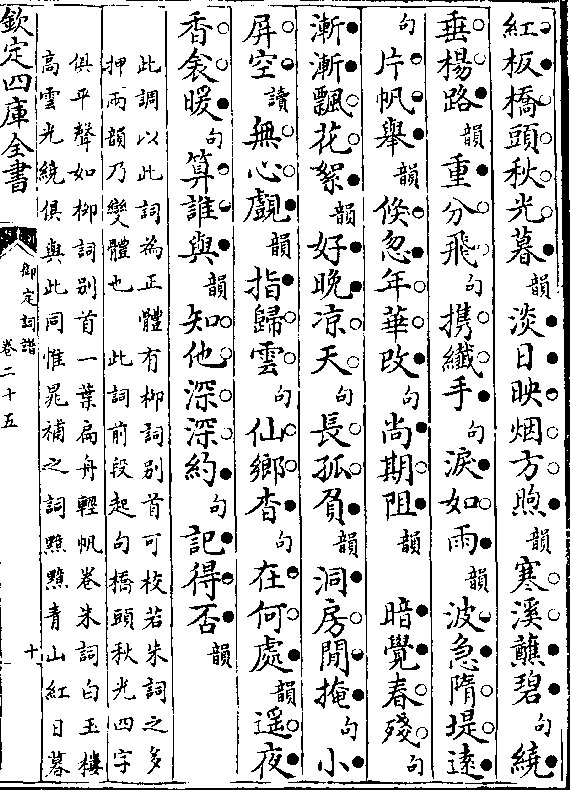 紅板橋頭秋光暮韻淡日映烟方煦韻寒溪蘸碧句繞
垂楊路韻重分飛句携纖手句淚如雨韻波急隋堤遠
句片帆舉韻倐忽年華改句尚期阻韻暗覺春殘句
漸漸飄花絮韻好晚凉天句長孤負韻洞房閒掩句小
屏空讀無心覷韻指歸雲句仙鄉杳句在何處韻遥夜
香衾暖句算誰與韻知他深深約句記得否韻
此調以此詞為正體有柳詞别首可校若朱詞之多
押兩韻乃變體也此詞前段起句橋頭秋光四字
俱平聲如柳詞别首一葉扁舟輕帆卷朱詞白玉樓
高雲光繞俱與此同惟晁補之詞黯黯青山紅日暮
欽定四庫全書
御定詞譜
卷二十五
十